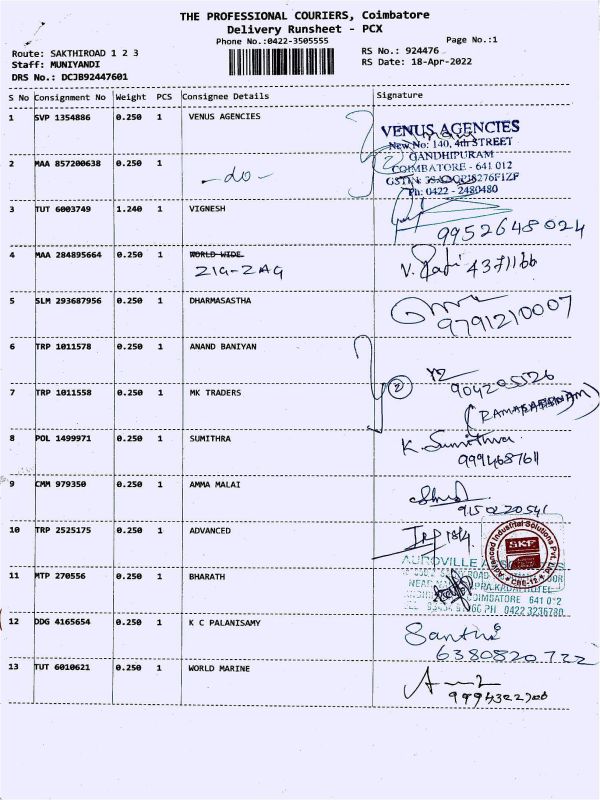 THE PROFESSIONAL COURIERS, Coimbatore
Delivery Runsheet - PCX
Phone No.:0422-3505555
Page No.:1
Route: SAKTHIROAD 1 2 3
RS No.: 924476
Staff: MUNIYANDI
RS Date: 18-Apr-2022
DRS No.: DCJB92447601
S No Consignment No Weight PCS Consignee Details Signature
1 SVP 1354886 0.250 1 VENUS AGENCIES
VENUS AGENCIES
New No: 140, 4th STREET
GANDHIPURAM
COIMBATORE - 641 012
Ph: 0422 - 2480480
2 MAA 857200638 0.250 1
-do-
3 TUT 6003749 1.240 1 VIGNESH
9952648024
4 MAA 284895664 0.250 1 WORLD WIDE
ZIG-ZAG
V. 4371166
5 SLM 293687956 0.250 1 DHARMASASTHA
9791210007
6 TRP 1011578 0.250 1 ANAND BANIYAN
2
904205526
7 TRP 1011558 0.250 1 MK TRADERS
8 POL 1499971 0.250 1 SUMITHRA
K. Sumithra
9 CMM 979350 0.250 1 AMMA MALAI
9150220541
10 TRP 2525175 0.250 1 ADVANCED
18/4
Advanced Industrial Solutions Pvt. Ltd.
SKF
CBE-12
11 MTP 270556 0.250 1 BHARATH
AUROVILLE
COIMBATORE 641 012
PH 0422 3236780
12 DDG 4165654 0.250 1 K C PALANISAMY
Santhi
6380820722
13 TUT 6010621 0.250 1 WORLD MARINE